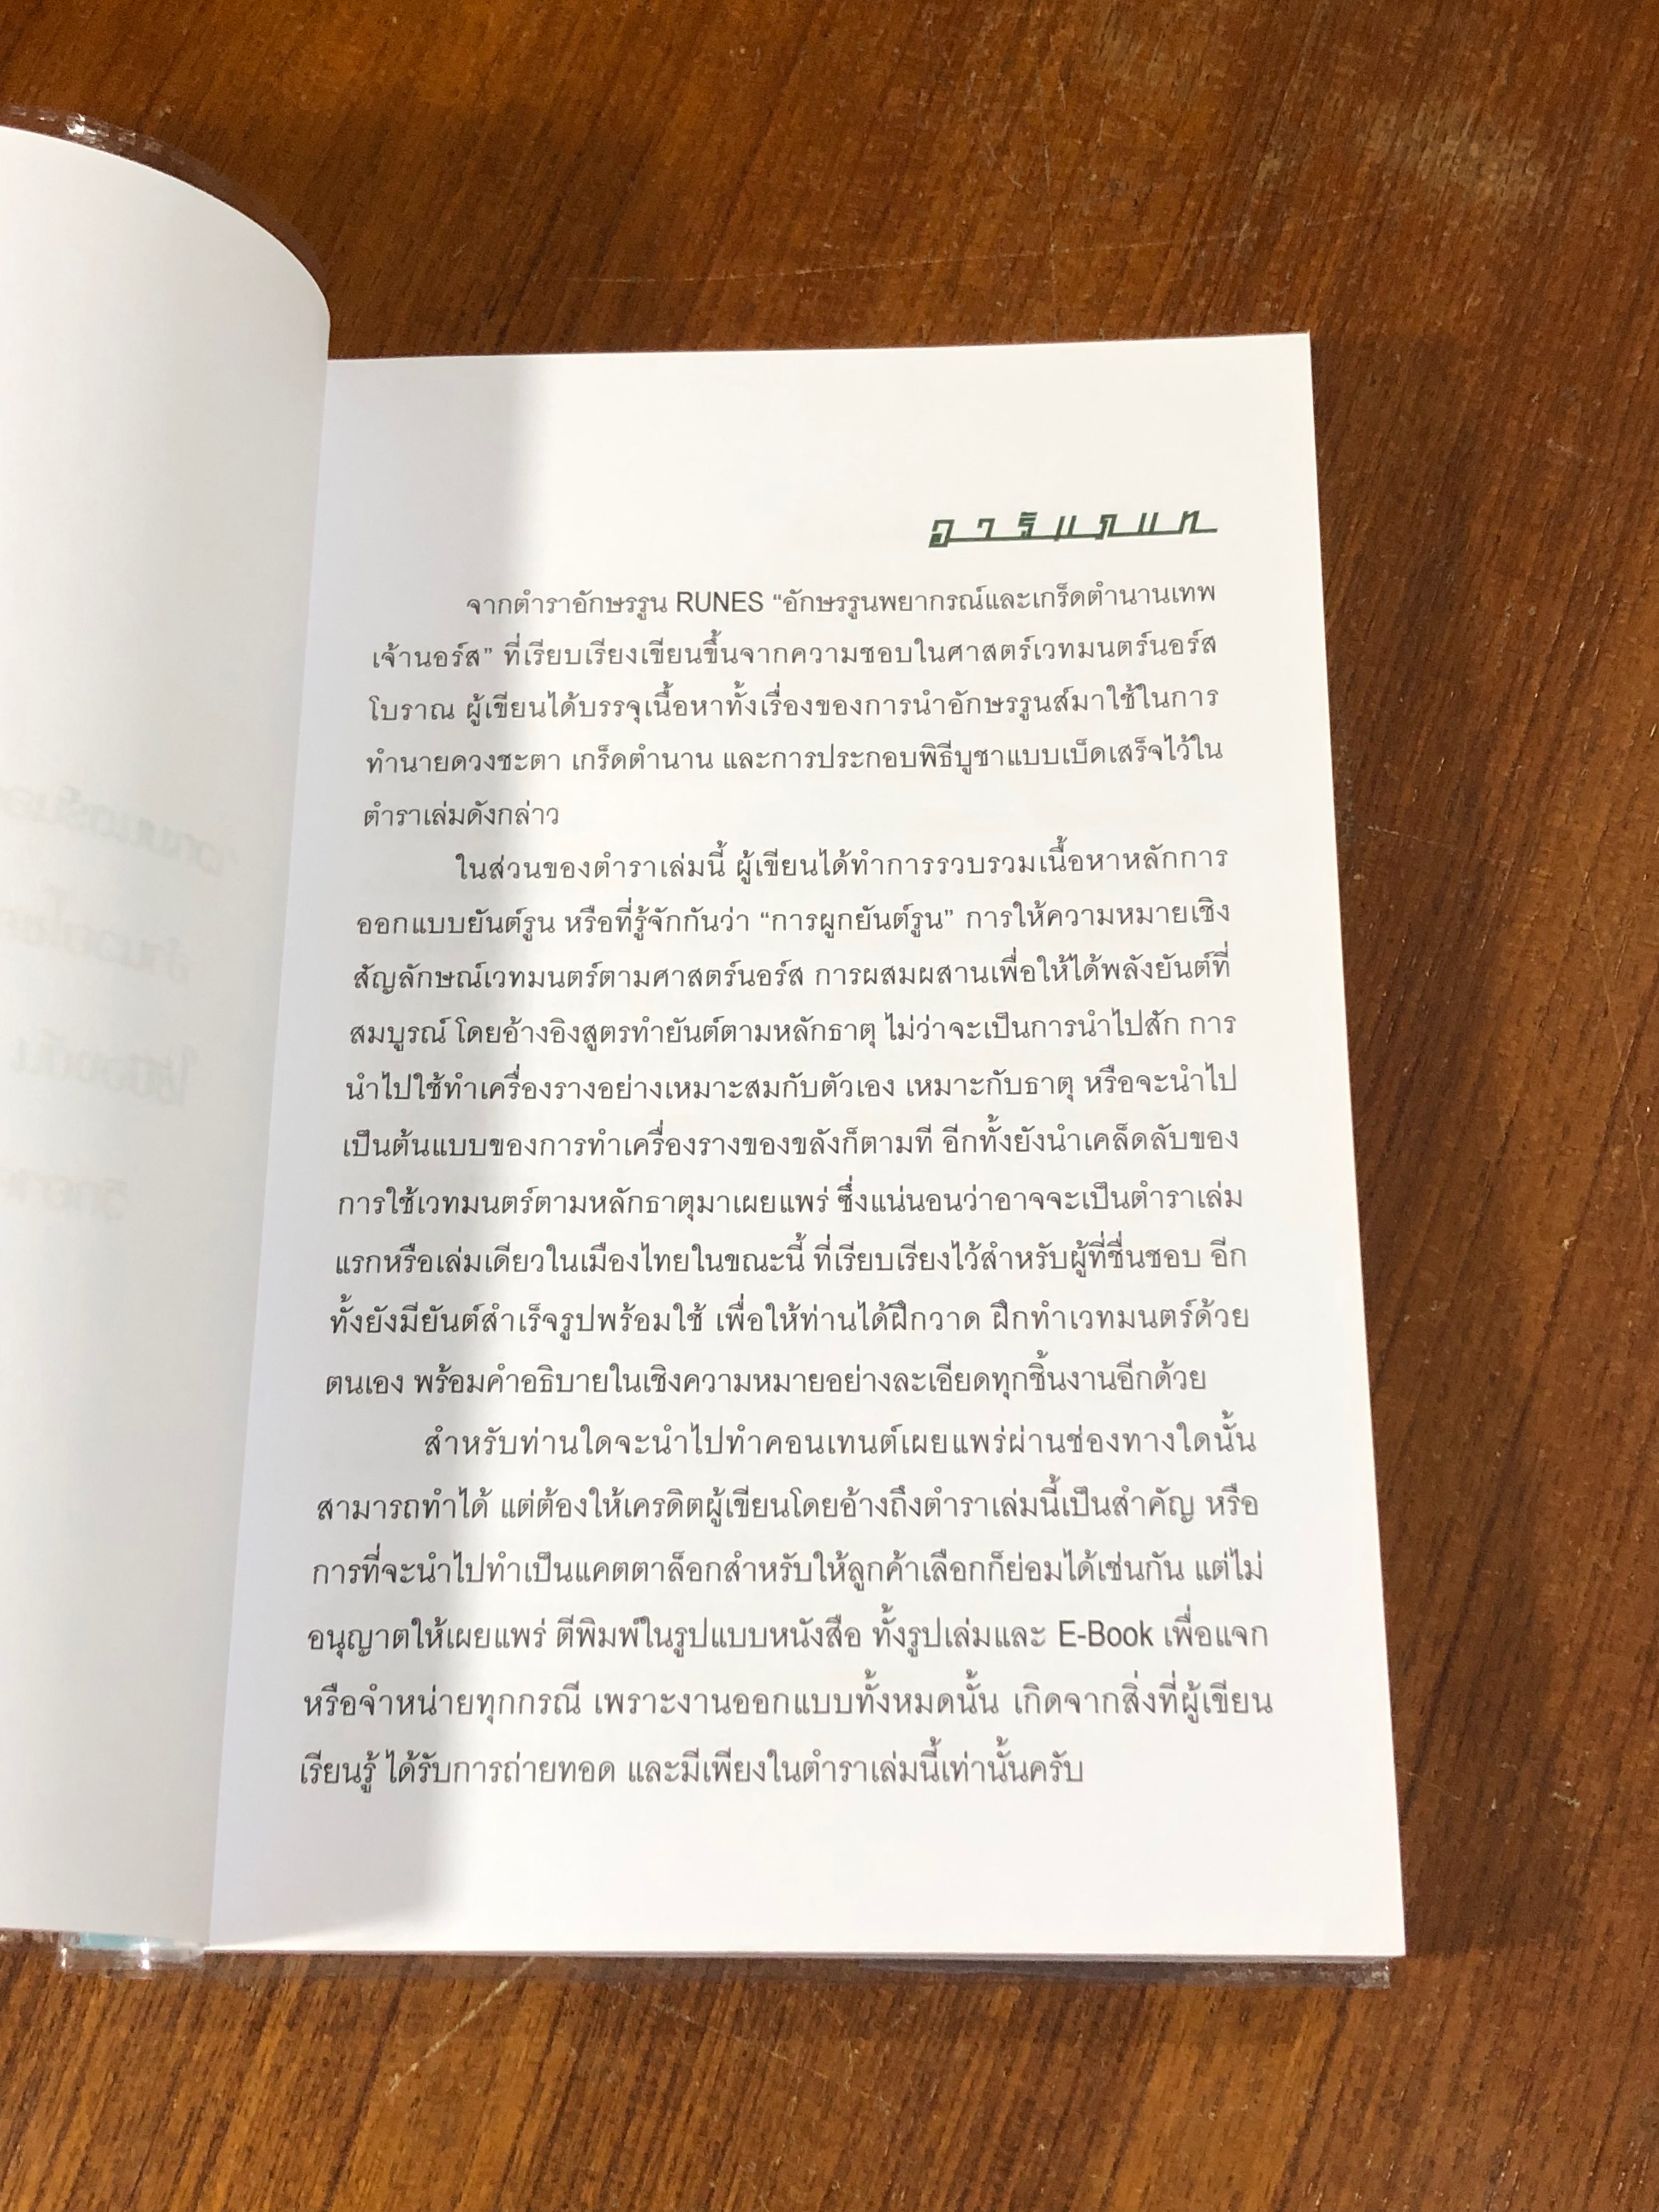 อารัมภบท
จากตำราอักษรรูน RUNES “อักษรรูนพยากรณ์และเกร็ดตำนานเทพ
เจ้านอร์ส” ที่เรียบเรียงเขียนขึ้นจากความชอบในศาสตร์เวทมนตร์นอร์ส
โบราณ ผู้เขียนได้บรรจุเนื้อหาทั้งเรื่องของการนำอักษรรูนส์มาใช้ในการ
ทำนายดวงชะตา เกร็ดตำนาน และการประกอบพิธีบูชาแบบเบ็ดเสร็จไว้ใน
ตำราเล่มดังกล่าว
ในส่วนของตำราเล่มนี้ ผู้เขียนได้ทำการรวบรวมเนื้อหาหลักการ
ออกแบบยันต์รูน หรือที่รู้จักกันว่า “การผูกยันต์รูน” การให้ความหมายเชิง
สัญลักษณ์เวทมนตร์ตามศาสตร์นอร์ส การผสมผสานเพื่อให้ได้พลังยันต์ที่
สมบูรณ์ โดยอ้างอิงสูตรทำยันต์ตามหลักธาตุ ไม่ว่าจะเป็นการนำไปสัก การ
นำไปใช้ทำเครื่องรางอย่างเหมาะสมกับตัวเอง เหมาะกับธาตุ หรือจะนำไป
เป็นต้นแบบของการทำเครื่องรางของขลังก็ตามที อีกทั้งยังนำเคล็ดลับของ
การใช้เวทมนตร์ตามหลักธาตุมาเผยแพร่ ซึ่งแน่นอนว่าอาจจะเป็นตำราเล่ม
แรกหรือเล่มเดียวในเมืองไทยในขณะนี้ ที่เรียบเรียงไว้สำหรับผู้ที่ชื่นชอบ อีก
ทั้งยังมียันต์สำเร็จรูปพร้อมใช้ เพื่อให้ท่านได้ฝึกวาด ฝึกทำเวทมนตร์ด้วย
ตนเอง พร้อมคำอธิบายในเชิงความหมายอย่างละเอียดทุกชิ้นงานอีกด้วย
สำหรับท่านใดจะนำไปทำคอนเทนต์เผยแพร่ผ่านช่องทางใดนั้น
สามารถทำได้ แต่ต้องให้เครดิตผู้เขียนโดยอ้างถึงตำราเล่มนี้เป็นสำคัญ หรือ
การที่จะนำไปทำเป็นแคตตาล็อกสำหรับให้ลูกค้าเลือกก็ย่อมได้เช่นกัน แต่ไม่
อนุญาตให้เผยแพร่ ตีพิมพ์ในรูปแบบหนังสือ ทั้งรูปเล่มและ E-Book เพื่อแจก
หรือจำหน่ายทุกกรณี เพราะงานออกแบบทั้งหมดนั้น เกิดจากสิ่งที่ผู้เขียน
เรียนรู้ ได้รับการถ่ายทอด และมีเพียงในตำราเล่มนี้เท่านั้นครับ